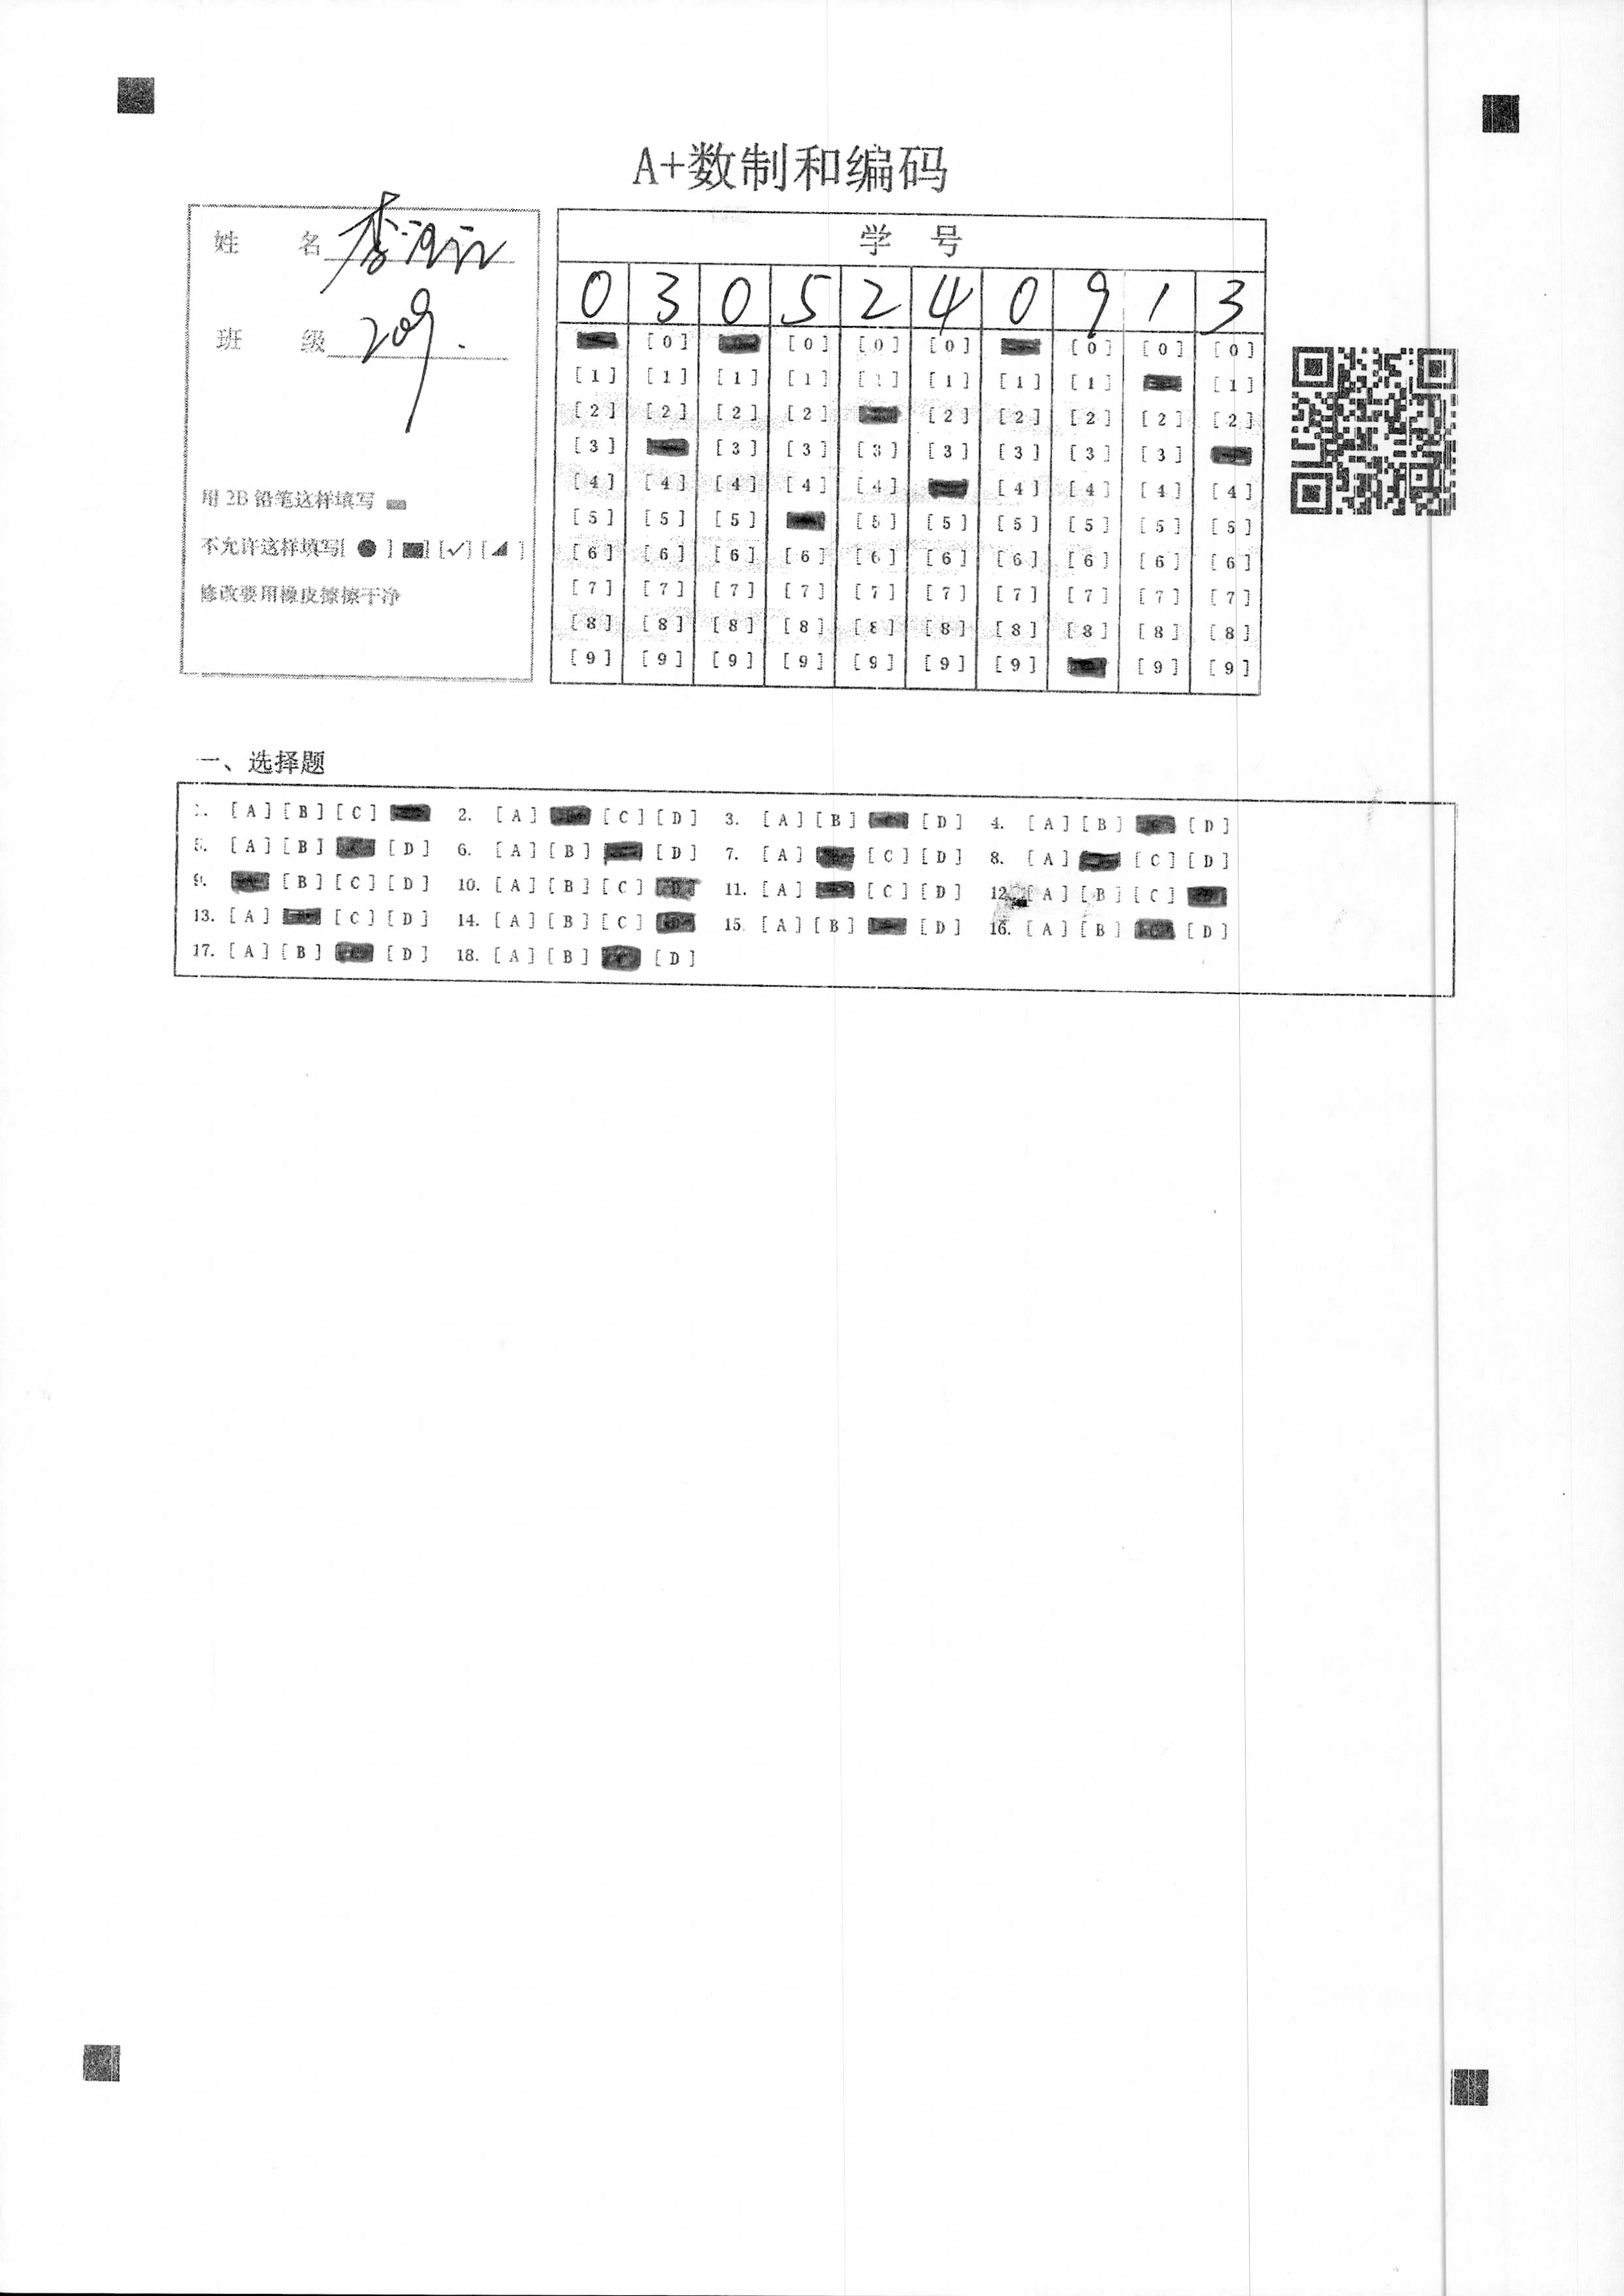 A+数制和编码
姓 名 李
班 级 209.
用 2B 铅笔这样填写
不允许这样填写[ ● ] [■] [✓] [◢ ]
修改要用橡皮擦擦干净
学 号
0 3 0 5 2 4 0 9 1 3
[0] [0] [0] [0] [0] [0] [0]
[1] [1] [1] [1] [1] [1] [1] [1] [1]
[2] [2] [2] [2] [2] [2] [2] [2] [2]
[3] [3] [3] [3] [3] [3] [3] [3]
[4] [4] [4] [4] [4] [4] [4] [4] [4]
[5] [5] [5] [5] [5] [5] [5] [5] [5]
[6] [6] [6] [6] [6] [6] [6] [6] [6] [6]
[7] [7] [7] [7] [7] [7] [7] [7] [7] [7]
[8] [8] [8] [8] [8] [8] [8] [8] [8] [8]
[9] [9] [9] [9] [9] [9] [9] [9] [9]
一、选择题
1. [A] [B] [C] 2. [A] [C] [D] 3. [A] [B] [D] 4. [A] [B] [D]
5. [A] [B] [D] 6. [A] [B] [D] 7. [A] [C] [D] 8. [A] [C] [D]
9. [B] [C] [D] 10. [A] [B] [C] [D] 11. [A] [C] [D] 12. [A] [B] [C]
13. [A] [C] [D] 14. [A] [B] [C] 15. [A] [B] [D] 16. [A] [B] [C] [D]
17. [A] [B] [C] [D] 18. [A] [B] [C] [D]